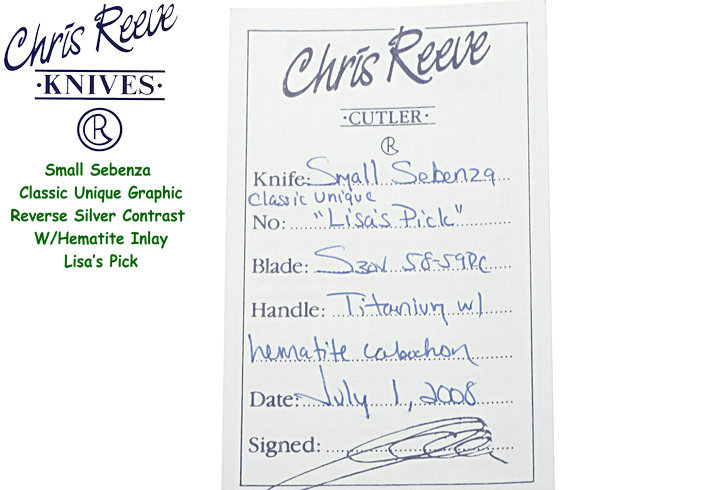 Chris Reeve
·KNIVES·
R
Small Sebenza
Classic Unique Graphic
Reverse Silver Contrast
W/Hematite Inlay
Lisa's Pick
Chris Reeve
·CUTLER·
R
Knife: Small Sebenza
Classic Unique
No: "Lisa's Pick"
Blade: S30V 58-59RC
Handle: Titanium w/
hematite cabochon
Date: July 1, 2008
Signed: